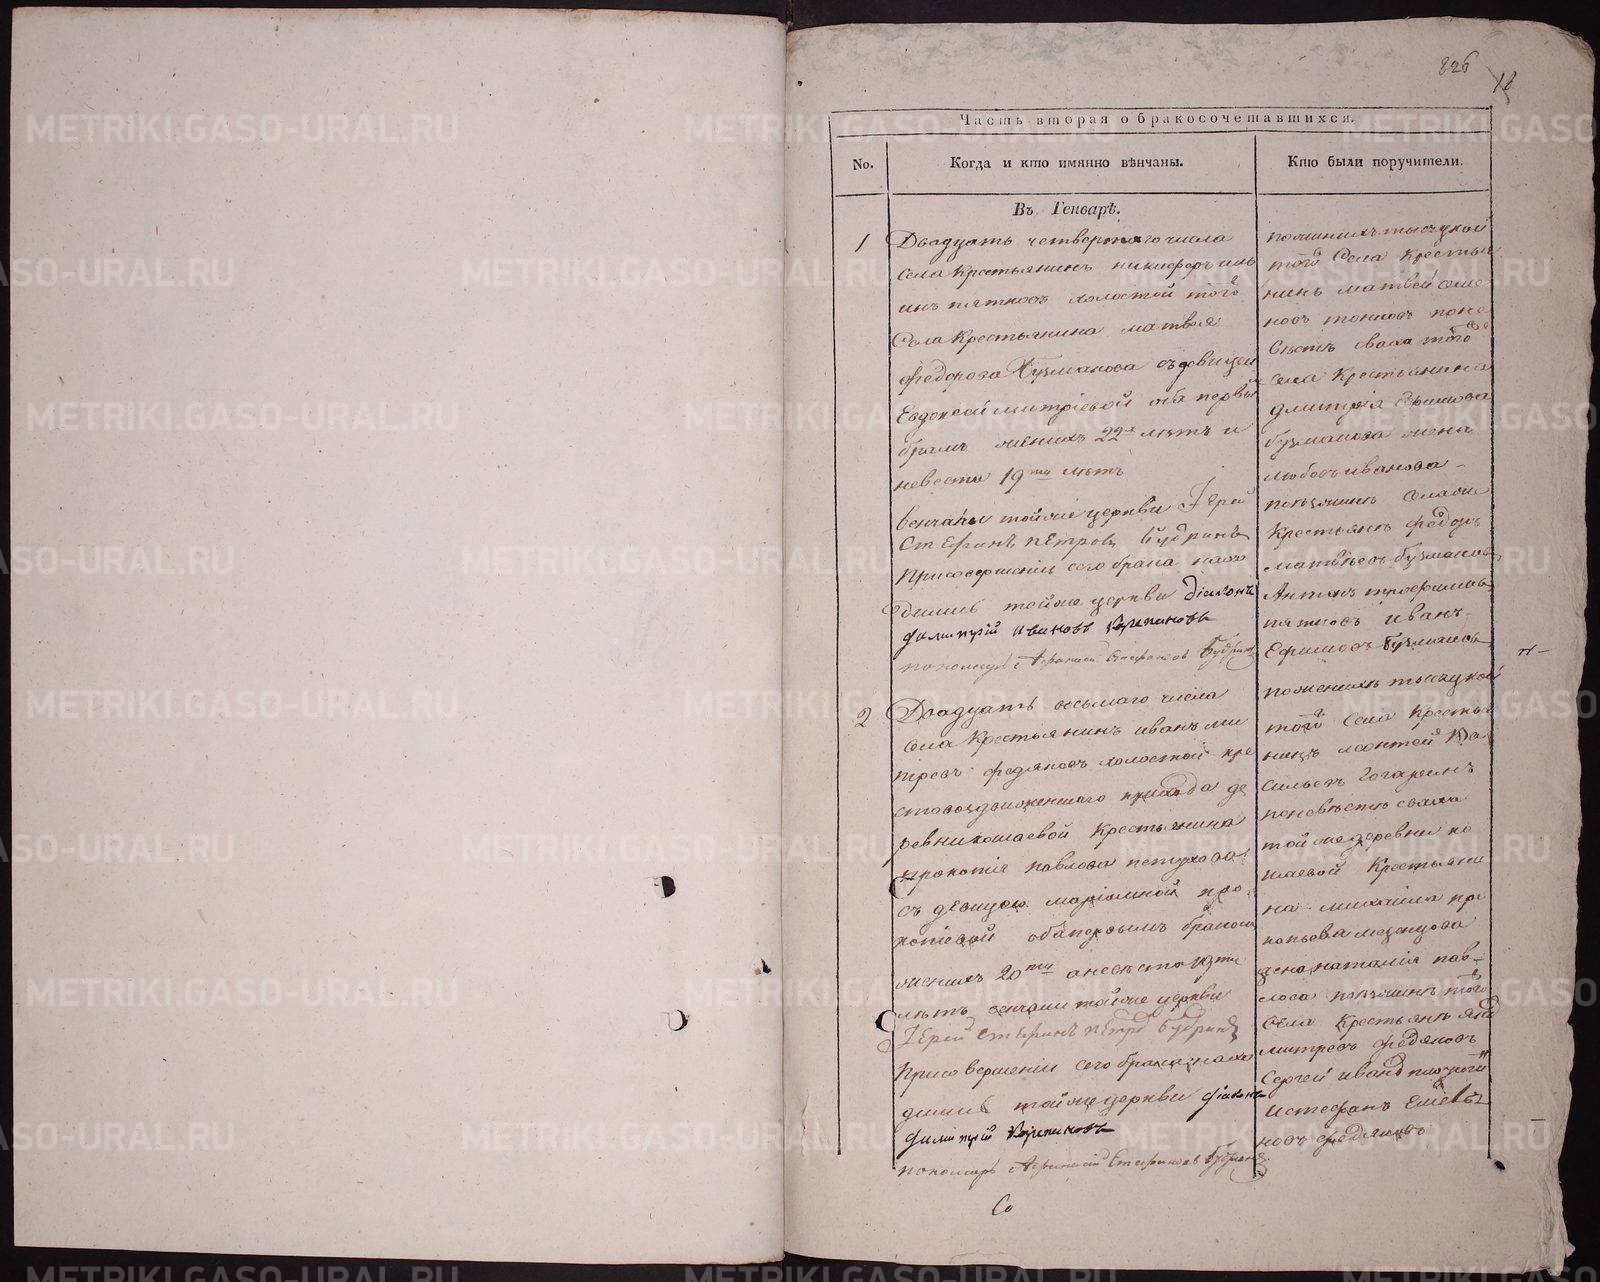 826
18
Часть вторая о бракосочетавшихся.
No.
Когда и кто имянно вѣнчаны.
Кто были поручители.
Въ Генварѣ.
1
Двадцать четвертаго числа
села крестьянинъ никифоръ
пятковъ холостой того
Села крестьянина матвея
федорова Кузманова съ девицеи
Евдокеой митріевой оба первы
бракъ жених 22 лѣтъ и
невеста 19 лѣтъ
венчаны тойже церкви Іерей
Стефанъ Петровъ Будринъ
При совершеніи сего брака нахо
дились тойже церкви діаконъ
Димитрій Ивановъ
пономарь Афанасий Стефановъ Будринъ
поженихѣ тысяцкой
того Села Крестья
нинъ матвей семе
новъ поне
вѣстѣ сваха того
села крестьянина
дмитрія
бузманова жена
любовь иванова
поезжанѣ села же
Крестьянѣ федоръ
матвѣевъ бузмановъ
Антонъ трофимовъ
пятковъ иванъ
Ефимовъ бузмановъ
2
Двадцать осьмаго числа
села Крестьянинъ иванъ ми
тревъ федяковъ холостой кре
стовоздвиженскаго прихода де
ревни кошаевой крестьянина
прокопія павлова петухова
съ девицею маріамной про
копіевой оба первымъ бракомъ
жених 20 а невеста
лѣтъ венчаны тойже церкви
Іерей Стефанъ Петровъ Будринъ
При совершеніи сего брака нахо
дились тойже церкви діаконъ
Димитрій
пономарь Афанасий Стефановъ Будринъ
поженихѣ тысяцкой
того села кресть
нинъ леонтей Ва
сильевъ Гогаринъ
поневѣстѣ сваха
тойже деревни ко
шаевой Крестьяни
на михаила про
копьева мезенцова
жена наталія пав
лова поезжанѣ того
села Крестьянѣ
митревъ федяковъ
Сергей иванов
истефанъ Емелья
новъ федяковъ
Со
METRIKI.GASO-URAL.RU